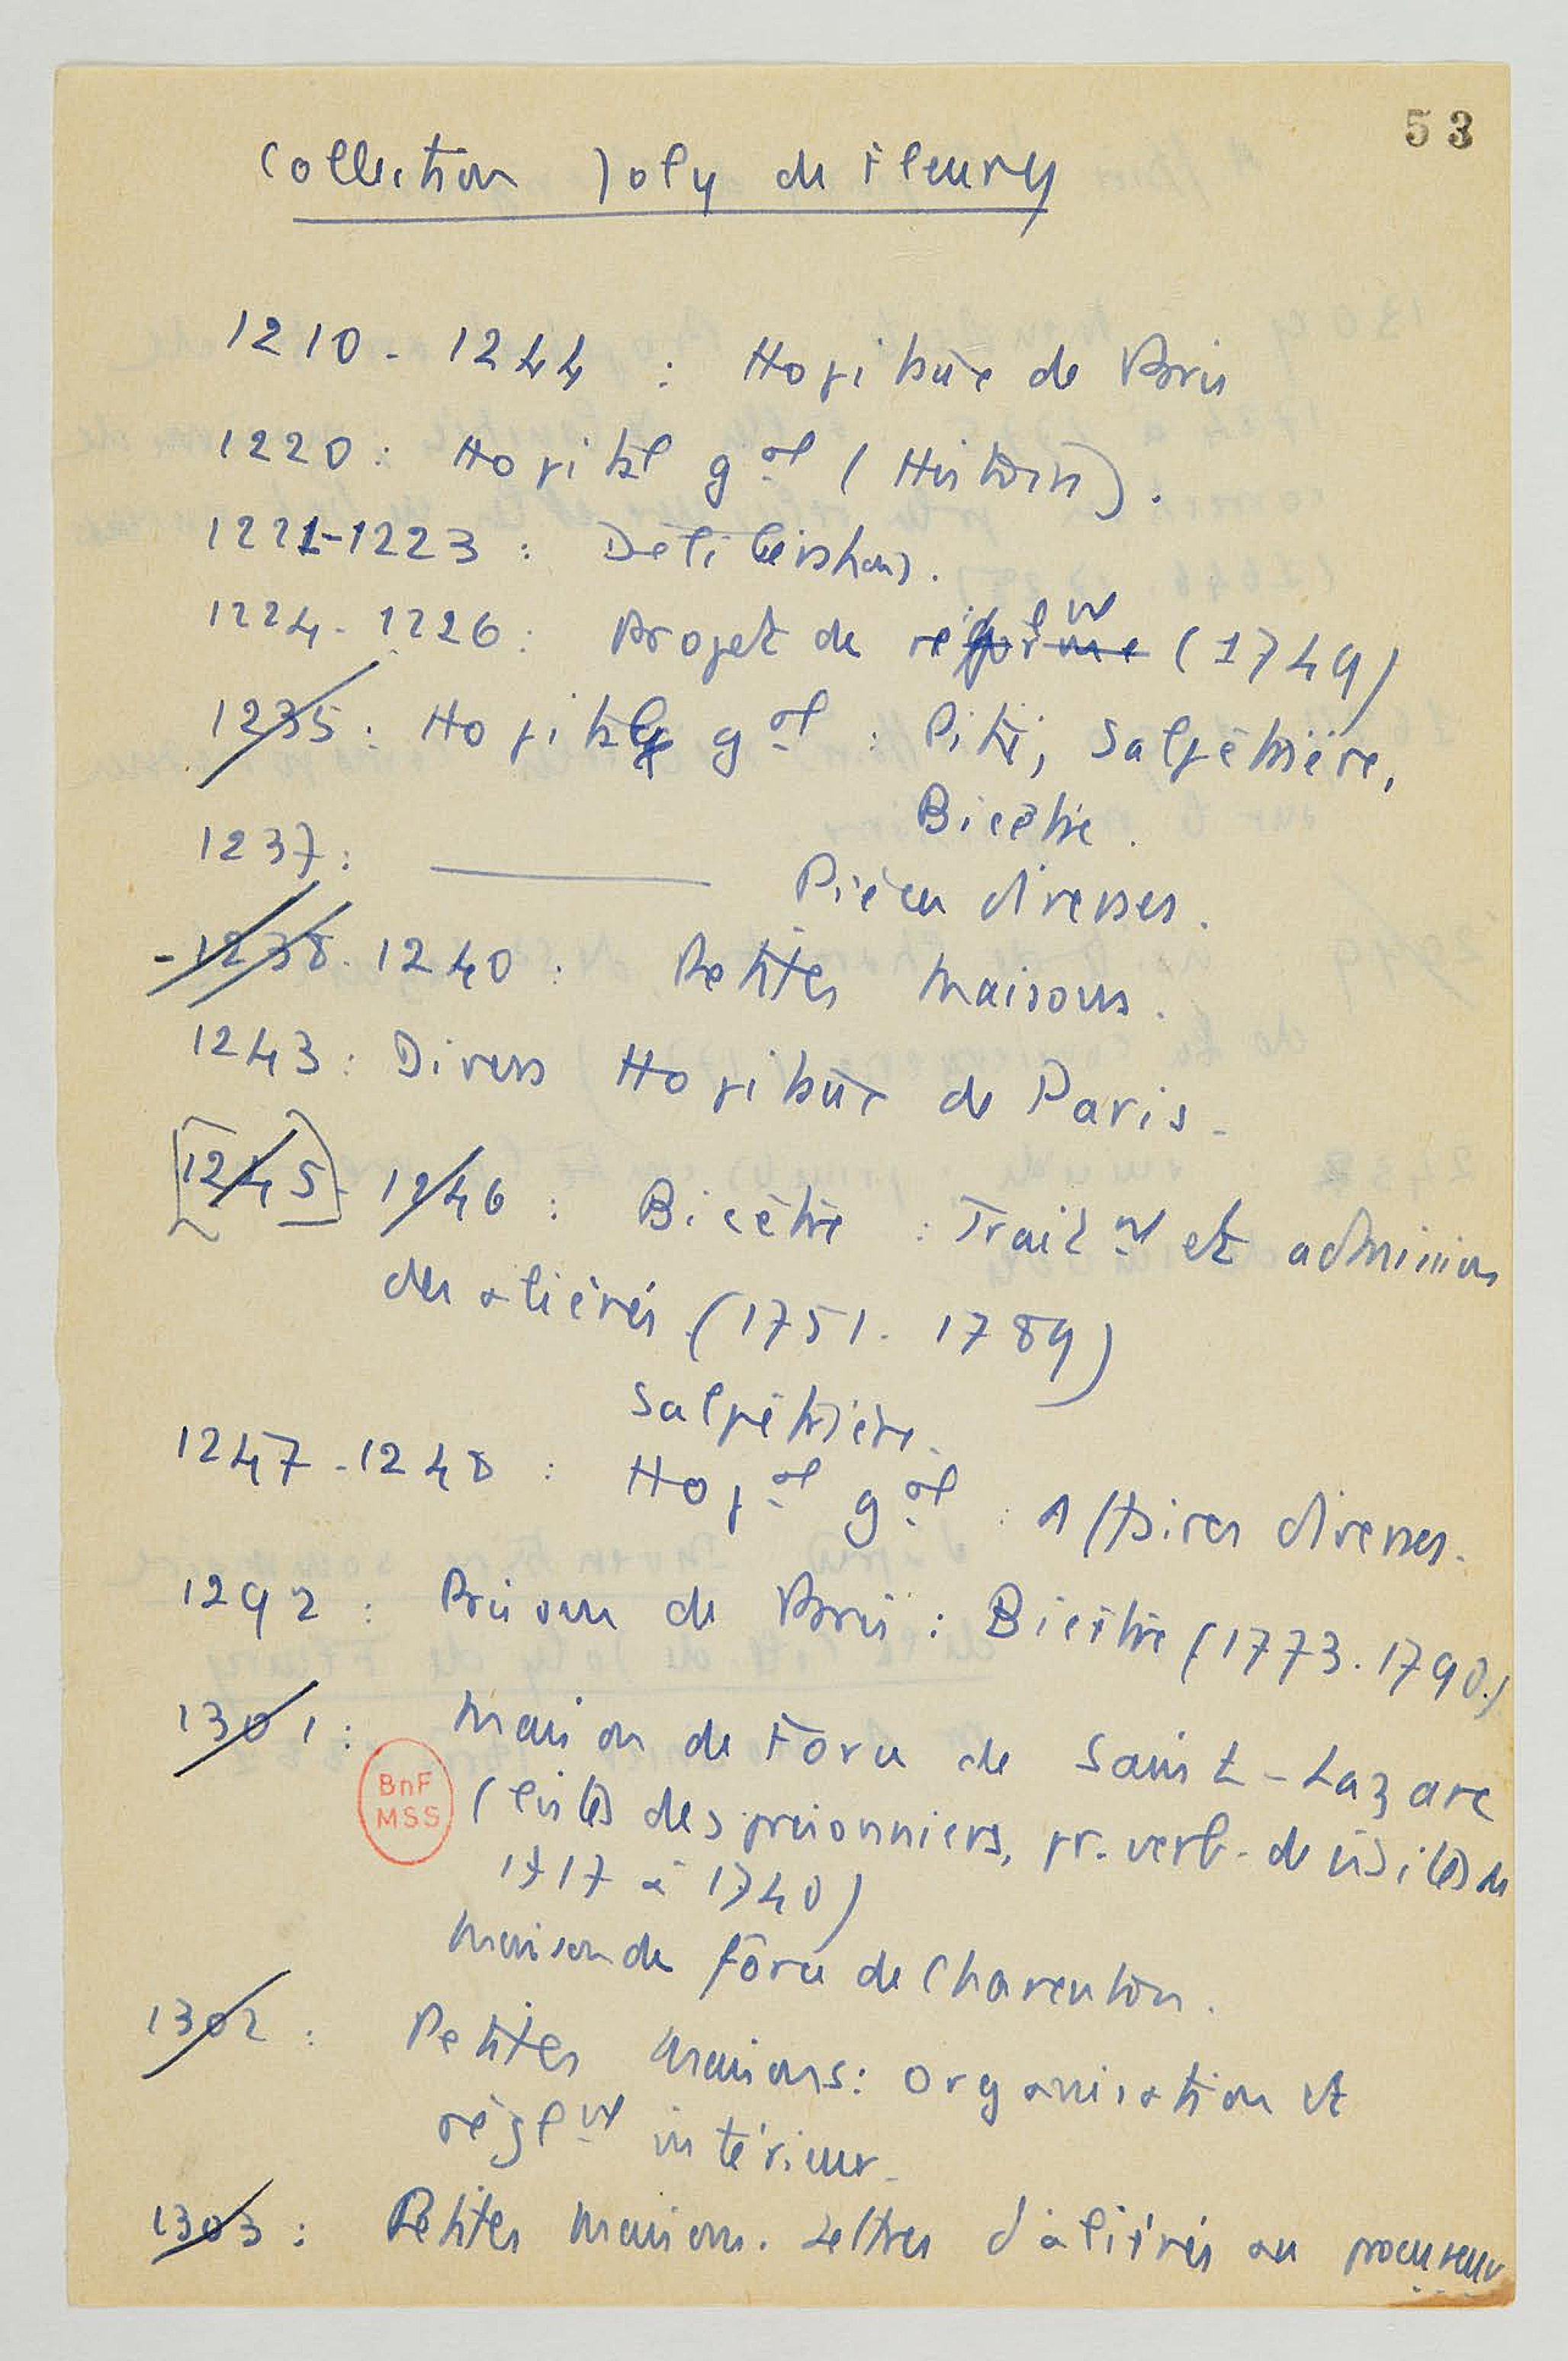 53
Collection Joly de Fleury
1210-1244 : Hopitaux de Paris
1220 : Hopital gal (Histoire).
1221-1223 : Délibérations.
1224-1226 : Projet de réglnt (1749)
1235 : Hopital gal : Pitié, Salpêtrière,
Bicêtre.
1237 : ——— Pièces diverses.
-1238-1240 : Petites Maisons.
1243 : Divers Hopitaux de Paris.
[1245]-1246 : Bicêtre : Traitnt et adminion
des aliénés (1751-1789)
Salpêtrière.
1247-1248 : Hopal gal : Affaires diverses.
1292 : Prisons de Paris : Bicêtre (1773-1790.)
1301 : Maison de Force de Saint-Lazare
BnF
MSS
(listes des prisonniers, pr. verb. de visites de
1717 à 1740)
Maison de force de Charenton.
1302 : Petites Maisons : organisation et
règlnt intérieur.
1303 : Petites Maisons. Lettres d'aliénés au procureur